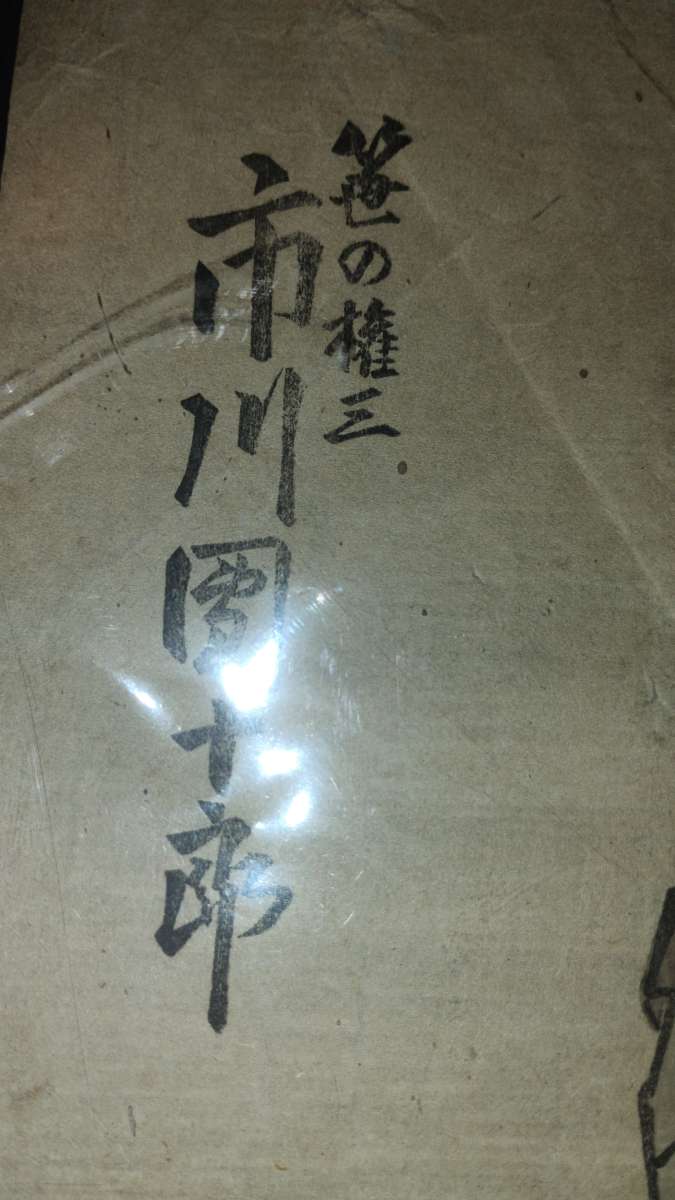 笹の権三
市川團十郎